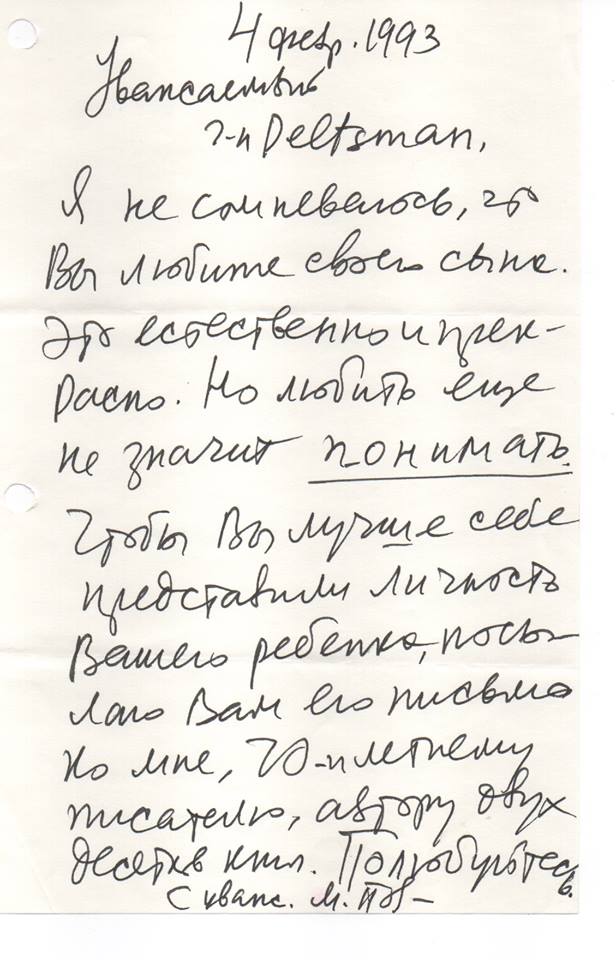 4 февр. 1993
Уважаемый
г-н Deltsman,
Я не сомневаюсь, что
Вы любите своего сына.
Это естественно и прек-
расно. Но любить еще
не значит понимать.
Чтобы Вы лучше себе
представили личность
Вашего ребенка, посы-
лаю Вам его письмо
ко мне, 70-и летнему
писателю, автору двух
десятков книг. Полюбуйтесь.
С уваж. М.